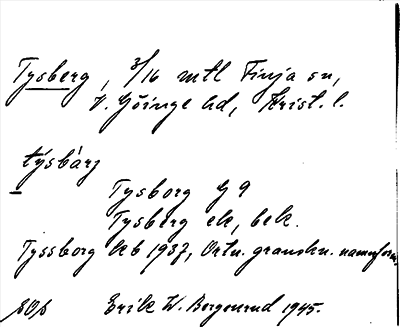 Tysberg, 3/16 mtl Finja sn,
V. Göinge hd, Krist. l.
týsbárj
Tysborg G 9
Tysberg ek, bek.
Tyssborg kb 1937, Ortn. granskn. namnform.
Erik W. Bergenrud 1945.